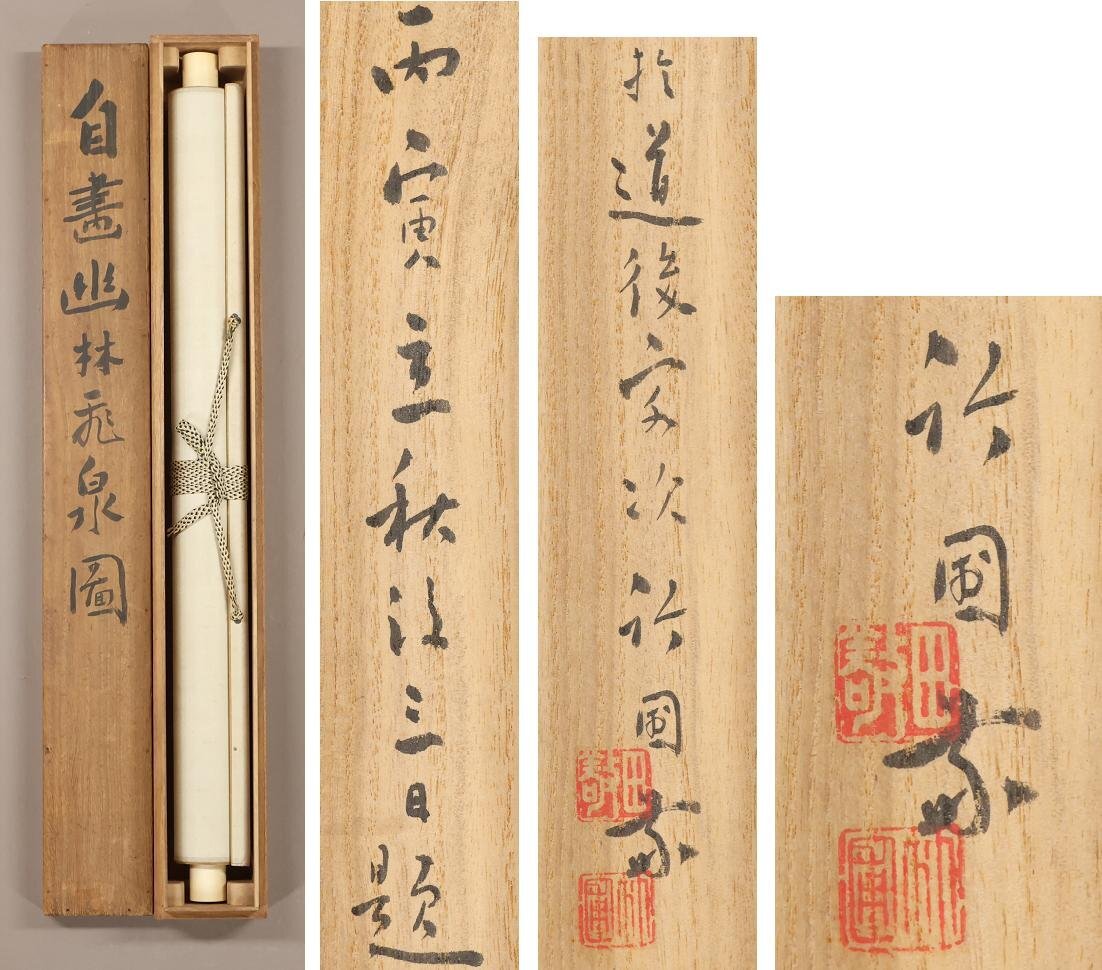 自畫幽林飛泉圖
丙寅立秋後三日題
於道後客次竹圃
竹圃